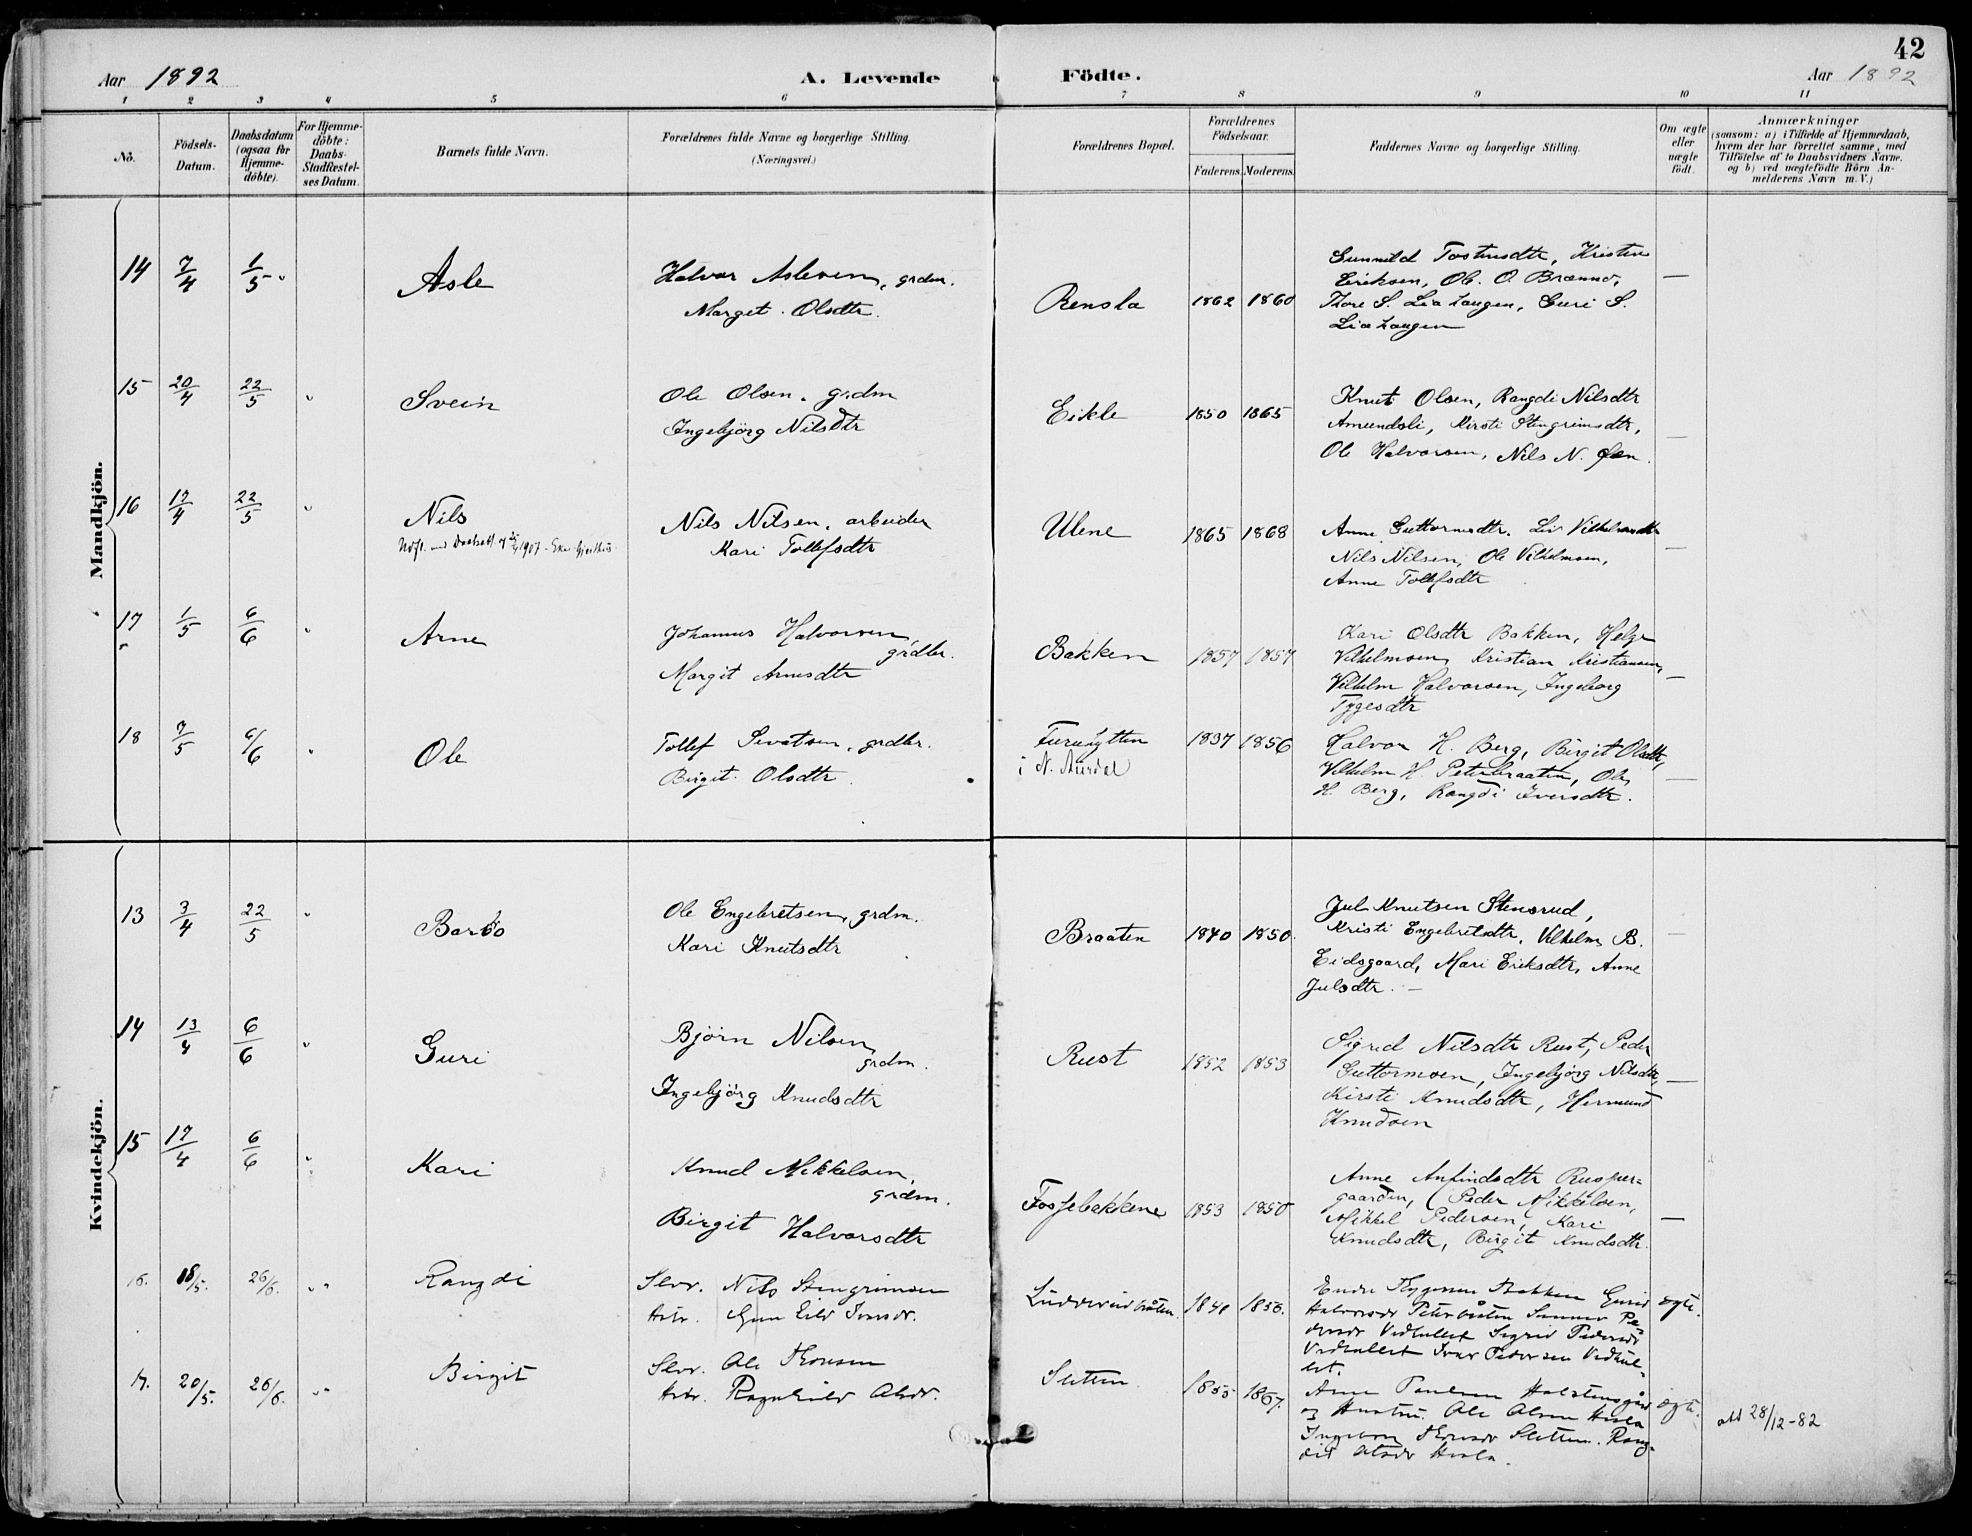 42
Aar 1892 A. Levende Födte. Aar 1892
1 2 3 4 5 6 7 8 9 10 11
No. Födsels-Datum. Daabsdatum (ogsaa for Hjemme-döbte). For Hjemme-döbte: Daabs-Stadfæstel-ses Datum. Barnets fulde Navn. Forældrenes fulde Navne og borgerlige Stilling. (Næringsvei.) Forældrenes Bopæl. Forældrenes Födselsaar. Faderens. Moderens. Faddernes Navne og borgerlige Stilling. Om ægte eller uægte födt. Anmærkninger (saasom: a) i Tilfælde af Hjemmedaab, hvem der har forrettet samme, med Tilföielse af to Daabsvidners Navne, og b) ved uægtefödte Börn An-melderens Navn m. V.)
Mandkjön.
14 7/4 1/5 Asle
Halvor Aslesen, grdm.
Marget Olsdtr.
Rensla 1862 1860
Gunnild Tostensdtr, Kristen
Eriksen, Ole O. Brænno,
Thore S. Liahaugen, Guri S.
Liahaugen
—
15 20/4 22/5 " Svein
Ole Olsen, grdm
Ingebjörg Nilsdtr
Eikle 1850 1865
Knut Olsen, Rangdi Nilsdtr
Amundsli, Kirsti Stengrimsdtr,
Ole Halvorsen, Nils N. Öen.
—
16 17/4 22/5 " Nils
1907
Nils Nilsen, arbeider
Kari Tollefsdtr
Ulene 1865 1868
Anne Guttormsdtr. Liv Vilhelmsdtr
Nils Nilsen, Ole Vilhelmsen,
Anne Tollefsdtr
—
17 1/5 6/6 " Arne
Johannes Halvorsen,
grdbr.
Margit Arnesdtr
Bakken 1857 1857
Kari Olsdtr Bakken, Helge
Vilhelmsen, Kristian Kristiansen,
Vilhelm Halvorsen, Ingeborg
Tygesdtr
—
18 7/5 6/6 " Ole
Tollef Sivatsen, grdbr.
Birgit Olsdtr
Furuhytten
i N. Aurdal
1837 1856
Halvor H. Berg, Birgit Olsdtr,
Vilhelm H. Peterbraaten, Ole
H. Berg, Rangdi Iversdtr.
—
Kvindekjön.
13 3/4 22/5 " Barbo
Ole Engebretsen, grdm.
Kari Knutsdtr
Braaten 1840 1850.
Jul Knutsen Stensrud,
Kristi Engebretsdtr, Vilhelm B.
Eidsgaard, Mari Eriksdtr, Anne
Julsdtr. —
—
14 13/4 6/6 " Guri
Björn Nilsen,
grdm.
Ingebjörg Knudsdtr
Rust 1852 1853
Sigrid Nilsdtr Rust, Peder
Guttormsen, Ingebjörg Nilsdtr,
Kirsti Knudsdtr, Hermund
Knudsen
—
15 17/4 6/6 " Kari
Knud Mikkelsen,
grdm.
Birgit Halvorsdtr
Fossebakkene 1853 1850
Anne Anfindsdtr Rusper-
gaarden, Peder Mikkelsen,
Mikkel Pedersen, Kari
Knudsdtr, Birgit Knudsdtr.
—
16. 18/5. 26/6. " Rangdi
Selvr. Nils Stengrimsen
Hstr. Gunhild Iversdr.
1840 1850.
Endre Tyggesen Bakken Guri
Halvorsdr Peterbråten Gunnor Pe-
dersdr Vedhullet Sigrid Pedersdr
Vedhullet Ivar Pedersen Vedhul-
let.
ægte.
17. 20/5. 26/6. " Birgit
Selvr. Ole Thorsen
Hstr. Ragnhild Olsdr.
Sletten 1855 1867.
Arne Paulsen Halstensgård
og Hustru. Ole Olsen Hisla
Ingeborg Thorsdr Sletten. Rang-
did Olsdr Hisla.
ægte.
28/12-82